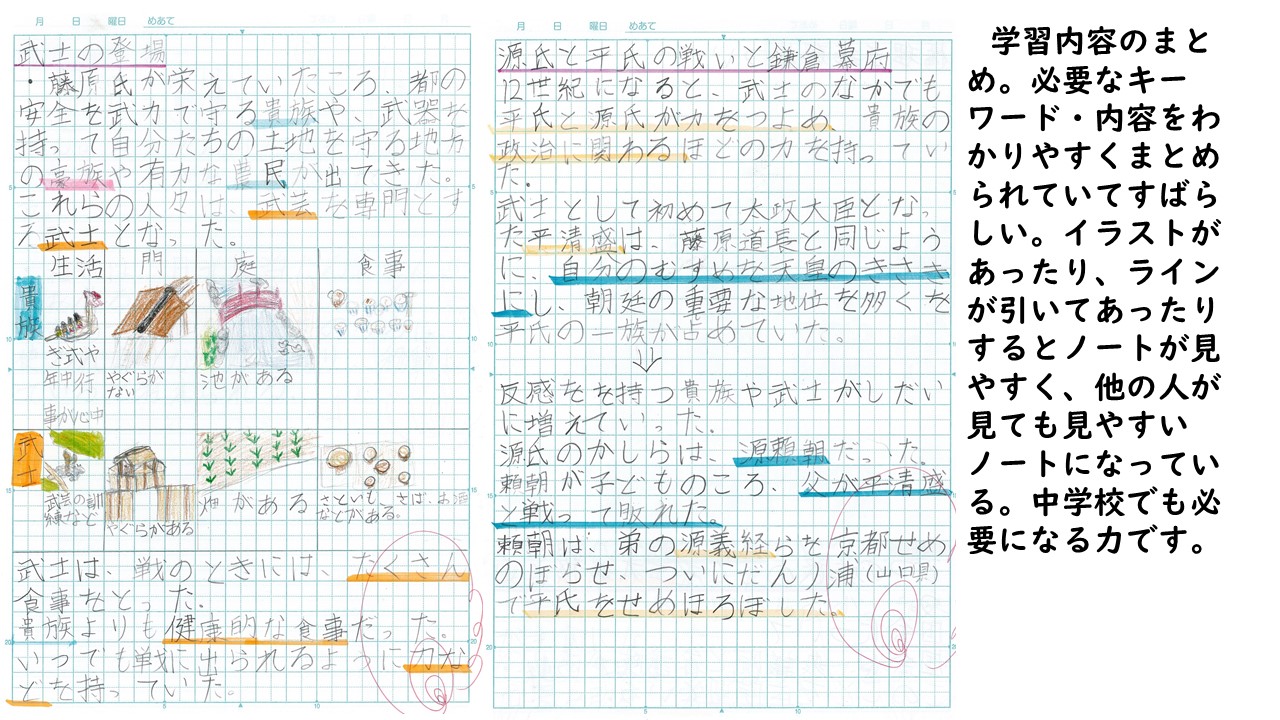 月 日 曜日 めあて
武士の登場
・藤原氏が栄えていたころ、都の
安全を武力で守る貴族や、武器を
持って自分たちの土地を守る地方
の豪族や有力な農民が出てきた。
これらの人々は、武芸を専門とす
る武士となった。
生活 門 庭 食事
貴族
ぎ式や
年中行
事が心中
やぐらが
ない
池がある
武士
武芸の訓
練など
やぐらがある
畑がある
さといも、さば、お酒
などがある。
武士は、戦のときには、たくさん
食事をとった。
貴族よりも健康的な食事だった。
いつでも戦に出られるように力な
どを持っていた。
月 日 曜日 めあて
源氏と平氏の戦いと鎌倉幕府
12世紀になると、武士のなかでも
平氏と源氏が力をつよめ、貴族の
政治に関わるほどの力を持ってい
た。
武士として初めて太政大臣となっ
た平清盛は、藤原道長と同じよう
に、自分のむすめを天皇のきさき
にし、朝廷の重要な地位を多くを
平氏の一族が占めていた。
↓
反感をを持つ貴族や武士がしだい
に増えていった。
源氏のかしらは、源頼朝だった。
頼朝が子どものころ、父が平清盛
と戦って敗れた。
頼朝は、弟の源義経らを京都せめ
のぼらせ、ついにだんノ浦(山口県)
で平氏をせめほろぼした。
学習内容のまと
め。必要なキー
ワード・内容をわ
かりやすくまとめ
られていてすばら
しい。イラストが
あったり、ライン
が引いてあったり
するとノートが見
やすく、他の人が
見ても見やすい
ノートになってい
る。中学校でも必
要になる力です。